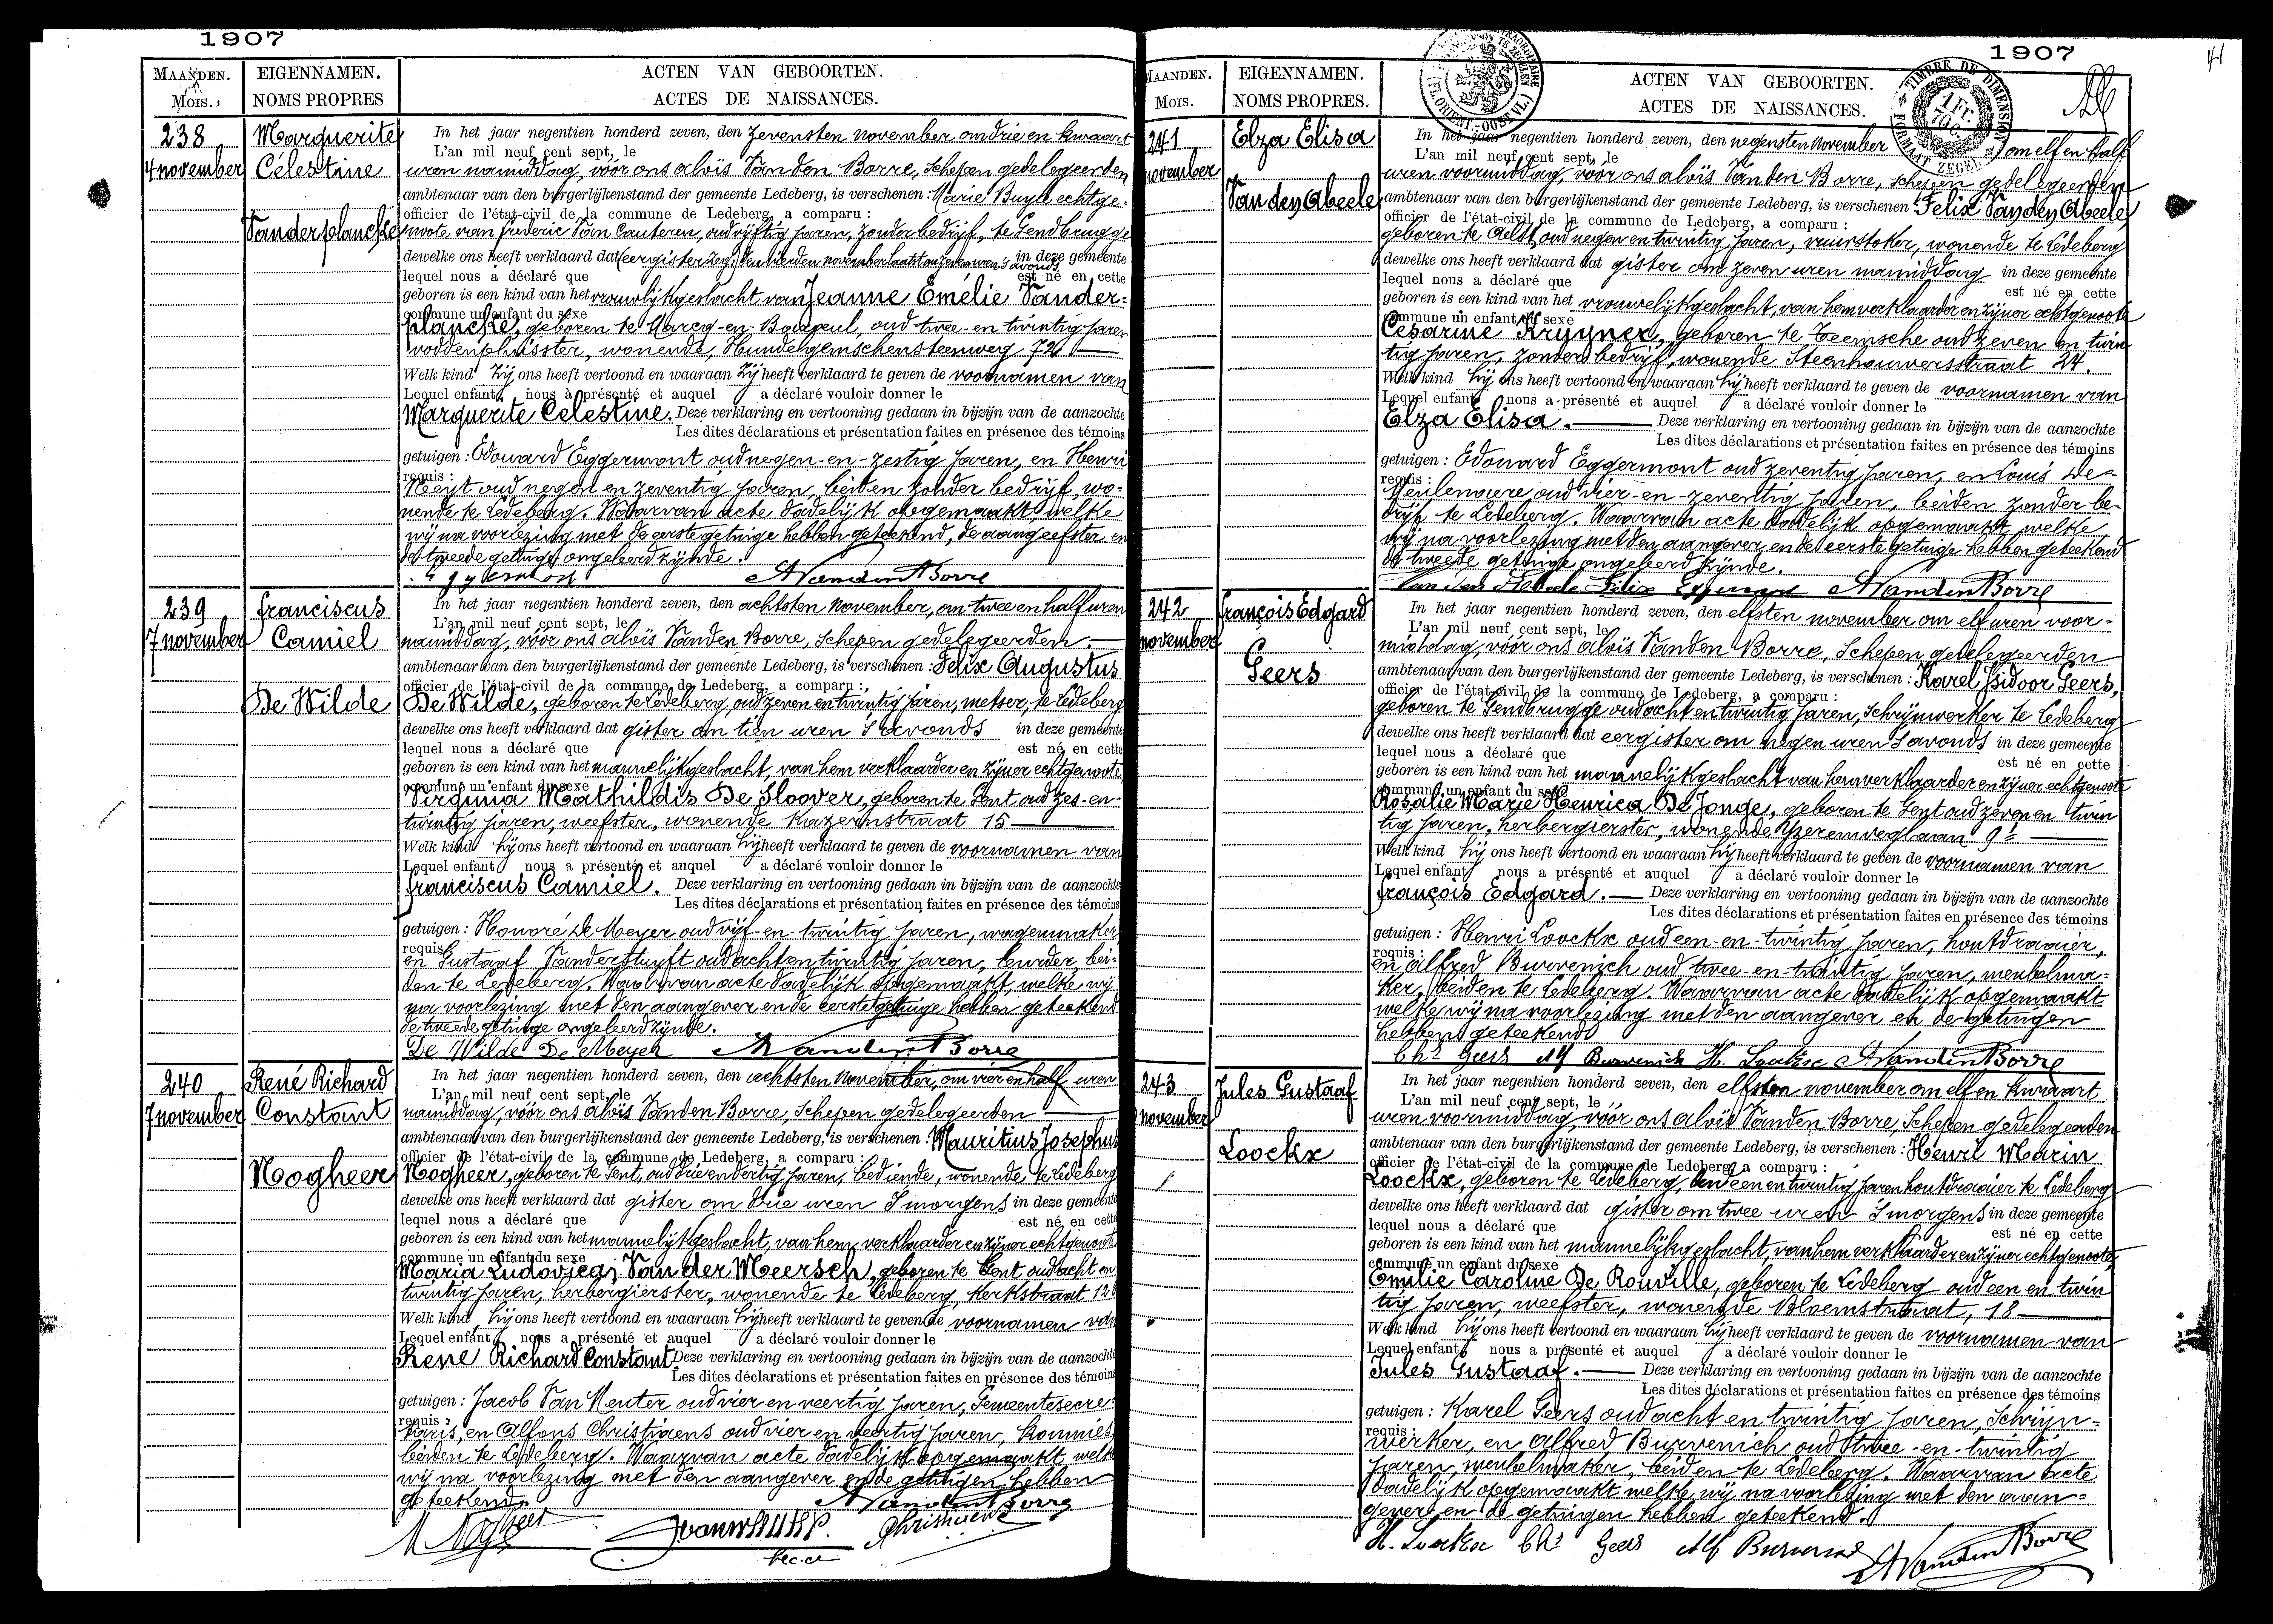 1907
MAANDEN. EIGENNAMEN. ACTEN VAN GEBOORTEN.
MOIS. NOMS PROPRES ACTES DE NAISSANCES.
238 Marguerite
4 november Célestine
Vanderplancke
In het jaar negentien honderd zeven, den zevensten november om drie en kwaart
L'an mil neuf cent sept, le
uren namiddag, vóór ons Aloïs Vanden Borre, schepen gedelegeerden
ambtenaar van den burgerlijkenstand der gemeente Ledeberg, is verschenen : Marie Buyle echtge-
officier de l'état-civil de la commune de Ledeberg, a comparu :
noote van Frederic Van Cauteren, oud vijftig jaren, zonder bedrijf, te Gendbrugge
dewelke ons heeft verklaard dat (eergister zeg) den vierden november laatst om zeven uren 's avonds in deze gemeente
lequel nous a déclaré que est né en cette
geboren is een kind van het vrouwlijkgeslacht van Jeanne Emélie Vander-
commune un enfant du sexe
plancke, geboren te Marcq-en-Baroeul, oud twee-en-twintig jaren
voddenpluisster, wonende, Hundelgemschensteenweg 72
Welk kind zij ons heeft vertoond en waaraan zij heeft verklaard te geven de voornamen van
Lequel enfant nous a présenté et auquel a déclaré vouloir donner le
Marguerite Célestine. Deze verklaring en vertooning gedaan in bijzijn van de aanzochte
Les dites déclarations et présentation faites en présence des témoins
getuigen : Edouard Eggermont oud negen-en-zestig jaren, en Henri
requis :
Neeyt oud negen en zeventig jaren, beiden zonder bedrijf, wo-
nende te Ledeberg. Waarvan acte dadelijk opgemaakt, welke
wij na voorlezing met de eerste getuige hebben geteekend, de aangeefster en
de tweede getuige ongeleerd zijnde.
AVandenBorre
239 Franciscus
7 november Camiel
De Wilde
In het jaar negentien honderd zeven, den achtsten november, om twee en half uren
L'an mil neuf cent sept, le
namiddag, vóór ons Aloïs Vanden Borre, schepen gedelegeerden
ambtenaar van den burgerlijkenstand der gemeente Ledeberg, is verschenen : Felix Augustus
officier de l'état-civil de la commune de Ledeberg, a comparu :
De Wilde, geboren te Ledeberg, oud zeven en twintig jaren, metser, te Ledeberg
dewelke ons heeft verklaard dat gister om tien uren 's avonds in deze gemeente
lequel nous a déclaré que est né en cette
geboren is een kind van het mannelijkgeslacht, van hem verklaarder en zijner echtgenoote
commune un enfant du sexe
Virginia Mathildis De Sloover, geboren te Gent oud zes-en-
twintig jaren, weefster, wonende Kazernstraat 15
Welk kind hij ons heeft vertoond en waaraan hij heeft verklaard te geven de voornamen van
Lequel enfant nous a présenté et auquel a déclaré vouloir donner le
Franciscus Camiel. Deze verklaring en vertooning gedaan in bijzijn van de aanzochte
Les dites déclarations et présentation faites en présence des témoins
getuigen : Honoré De Meyer oud vijf-en-twintig jaren, wagenmaker
requis :
en Gustaaf Vanderstuyft oud acht en twintig jaren, leurder, bei-
den te Ledeberg. Waarvan acte dadelijk opgemaakt, welke wij
na voorlezing met den aangever en de eerste getuige hebben geteekend
de tweede getuige ongeleerd zijnde.
De Wilde De Meyer AVandenBorre
240 René Richard
7 november Constant
Nogheer
In het jaar negentien honderd zeven, den achtsten november, om vier en half uren
L'an mil neuf cent sept, le
namiddag, vóór ons Aloïs Vanden Borre, schepen gedelegeerden
ambtenaar van den burgerlijkenstand der gemeente Ledeberg, is verschenen : Mauritius Josephus
officier de l'état-civil de la commune de Ledeberg, a comparu :
Nogheer, geboren te Gent, oud drie en dertig jaren, bediende, wonende te Ledeberg
dewelke ons heeft verklaard dat gister om drie uren 's morgens in deze gemeente
lequel nous a déclaré que est né en cette
geboren is een kind van het mannelijkgeslacht, van hem verklaarder en zijner echtgenoote
commune un enfant du sexe
Maria Ludovica Van der Meersch, geboren te Gent oud acht en
twintig jaren, herbergierster, wonende te Ledeberg, Kerkstraat 128
Welk kind hij ons heeft vertoond en waaraan hij heeft verklaard te geven de voornamen van
Lequel enfant nous a présenté et auquel a déclaré vouloir donner le
René Richard Constant. Deze verklaring en vertooning gedaan in bijzijn van de aanzochte
Les dites déclarations et présentation faites en présence des témoins
getuigen : Jacob Van Wenter oud vier en veertig jaren, Gemeentesecre-
requis :
taris, en Alfons Christiaens oud vier en veertig jaren, kommies,
beiden te Ledeberg. Waarvan acte dadelijk opgemaakt, welke
wij na voorlezing met den aangever en de getuigen hebben
geteekend. AVandenBorre
M Nogheer Christiaens
1907
41
MAANDEN. EIGENNAMEN. ACTEN VAN GEBOORTEN.
Mois. NOMS PROPRES. ACTES DE NAISSANCES.
TIMBRE DE DIMENSION
1 Fr. 70 C.
FORMAAT ZEGEL
241 Elza Elisa
november
Vanden Abeele
In het jaar negentien honderd zeven, den negensten november om elf en half
L'an mil neuf cent sept, le
uren voormiddag, vóór ons Aloïs Vanden Borre, schepen gedelegeerden
ambtenaar van den burgerlijkenstand der gemeente Ledeberg, is verschenen Felix Vanden Abeele,
officier de l'état-civil de la commune de Ledeberg, a comparu :
geboren te Aelst, oud negen en twintig jaren, vuurstoker, wonende te Ledeberg
dewelke ons heeft verklaard dat gister om zeven uren namiddag in deze gemeente
lequel nous a déclaré que est né en cette
geboren is een kind van het vrouwelijkgeslacht, van hem verklaarder en zijner echtgenoote
commune un enfant du sexe
Cesarine Kruyner, geboren te Zeemsche oud zeven en twin
tig jaren, zonder bedrijf, wonende Steenhouwersstraat 24.
Welk kind hij ons heeft vertoond en waaraan hij heeft verklaard te geven de voornamen van
Lequel enfant nous a présenté et auquel a déclaré vouloir donner le
Elza Elisa. Deze verklaring en vertooning gedaan in bijzijn van de aanzochte
Les dites déclarations et présentation faites en présence des témoins
getuigen : Edouard Eggermont oud zeventig jaren, en Louis De
requis :
Meulenaere, oud vier-en-zeventig jaren, beiden zonder be-
drijf, te Ledeberg. Waarvan acte dadelijk opgemaakt, welke
wij na voorlezing met den aangever en de eerste getuige hebben geteekend
de tweede getuige ongeleerd zijnde.
Van den Abeele Felix AVandenBorre
242 François Edgard
november
Geers
In het jaar negentien honderd zeven, den elfsten november om elf uren voor-
L'an mil neuf cent sept, le
middag, vóór ons Aloïs Vanden Borre, Schepen gedelegeerden
ambtenaar van den burgerlijkenstand der gemeente Ledeberg, is verschenen : Karel Isidoor Geers,
officier de l'état-civil de la commune de Ledeberg, a comparu :
geboren te Gendbrugge oud acht en twintig jaren, schrijnwerker te Ledeberg
dewelke ons heeft verklaard dat eergister om negen uren 's avonds in deze gemeente
lequel nous a déclaré que est né en cette
geboren is een kind van het mannelijkgeslacht van hem verklaarder en zijner echtgenoote
commune un enfant du sexe
Rosalie Marie Henrica De Jonge, geboren te Gent oud zeven en twin
tig jaren, herbergierster, wonende Yzerenweglaan 9
Welk kind hij ons heeft vertoond en waaraan hij heeft verklaard te geven de voornamen van
Lequel enfant nous a présenté et auquel a déclaré vouloir donner le
François Edgard. Deze verklaring en vertooning gedaan in bijzijn van de aanzochte
Les dites déclarations et présentation faites en présence des témoins
getuigen : Henri Loockx oud een-en-twintig jaren, houtdraaier,
requis :
en Alfred Burvenich oud twee-en-twintig jaren, meubelma-
ker, beiden te Ledeberg. Waarvan acte dadelijk opgemaakt
welke wij na voorlezing met den aangever en de getuigen
hebben geteekend
Chs Geers Alf Burvenich H. Loockx AVandenBorre
243 Jules Gustaaf
november
Loockx
In het jaar negentien honderd zeven, den elfsten november om elf en kwaart
L'an mil neuf cent sept, le
uren voormiddag, vóór ons Aloïs Vanden Borre, Schepen gedelegeerden
ambtenaar van den burgerlijkenstand der gemeente Ledeberg, is verschenen : Henri Marin
officier de l'état-civil de la commune de Ledeberg, a comparu :
Loockx, geboren te Ledeberg, oud een en twintig jaren houtdraaier te Ledeberg
dewelke ons heeft verklaard dat gister om twee uren 's morgens in deze gemeente
lequel nous a déclaré que est né en cette
geboren is een kind van het mannelijkgeslacht, van hem verklaarder en zijner echtgenoote
commune un enfant du sexe
Emilie Caroline De Rouville, geboren te Ledeberg oud een en twin
tig jaren, weefster, wonende Bloemstraat, 18
Welk kind hij ons heeft vertoond en waaraan hij heeft verklaard te geven de voornamen van
Lequel enfant nous a présenté et auquel a déclaré vouloir donner le
Jules Gustaaf. Deze verklaring en vertooning gedaan in bijzijn van de aanzochte
Les dites déclarations et présentation faites en présence des témoins
getuigen : Karel Geers oud acht en twintig jaren, schrijn-
requis :
werker, en Alfred Burvenich oud twee-en-twintig
jaren, meubelmaker, beiden te Ledeberg. Waarvan acte
dadelijk opgemaakt welke wij na voorlezing met den aan-
gever en de getuigen hebben geteekend.
H. Loockx Chs Geers Alf Burvenich AVandenBorre